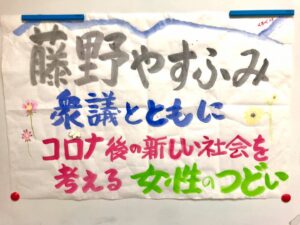 藤野やすふみ
衆議とともに
コロナ後の新しい社会を
考える 女性のつどい